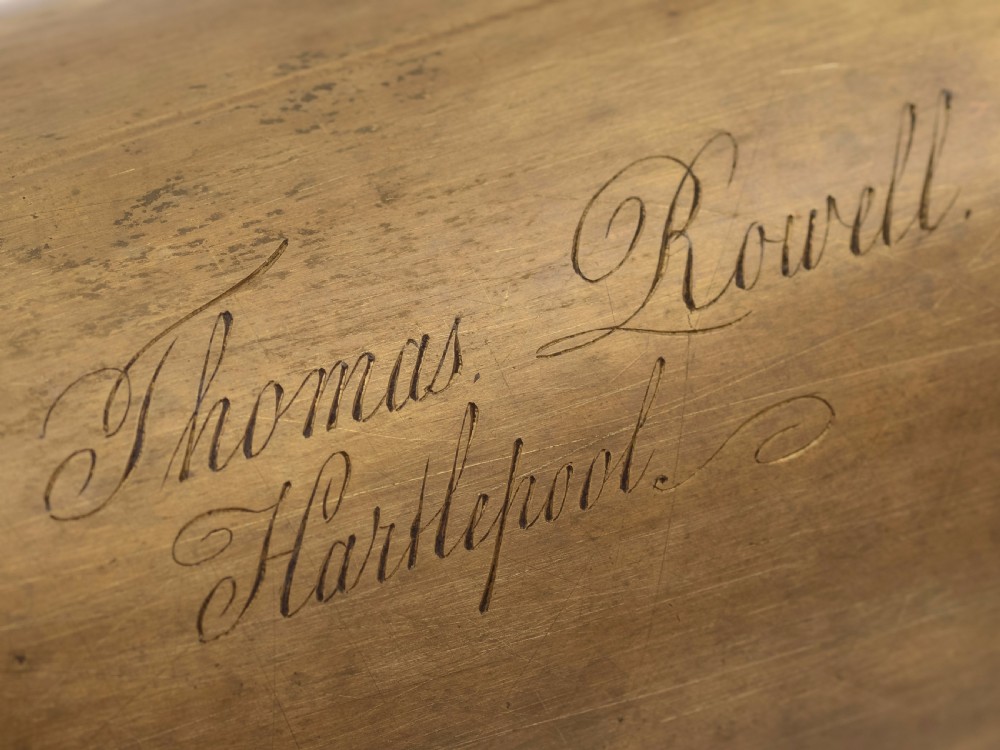 Thomas. Rowell.
Hartlepool.